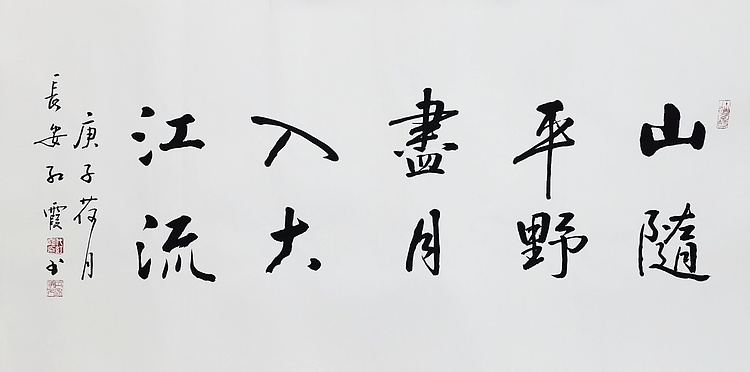 山隨
平野
盡月
入大
江流
庚子荷月
長安红霞书